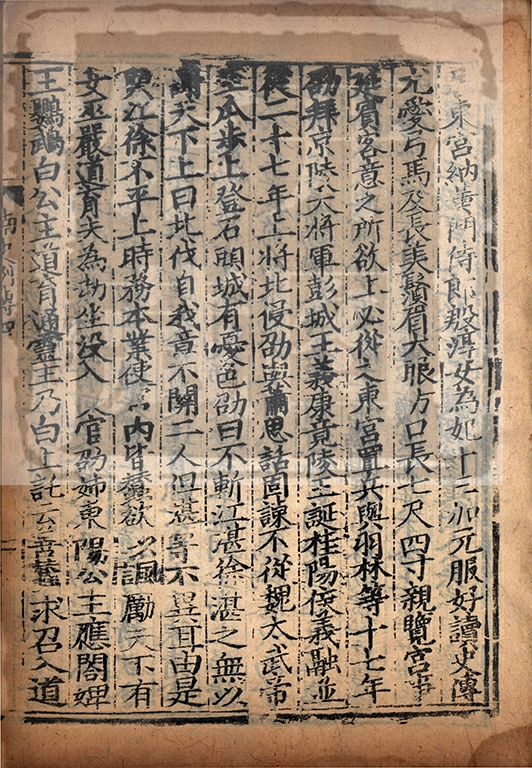 東宮納黃門侍郎殷淳女為妃十三加元服好讀史傳
尤愛弓馬及長美鬚眉大眼方口長七尺四寸親覽宮事
延賓客意之所欲上必從之東宮置兵與羽林等十七年
劭拜京陵大將軍彭城王義康竟陵王誕桂陽侯義融並
從二十七年上將北侵劭與蕭思話固諫不從魏太武帝
至瓜步上登石頭城有憂色劭曰不斬江湛徐湛之無以
謝天下上曰北伐自我意不關二人但湛等不異耳由是
與江徐不平上時務本業使宮內皆蠶欲以諷勵天下有
女巫嚴道育夫為劫坐沒入 官劭姊東陽公主應閤婢
王鸚鵡白公主道育通靈主乃白上託云善蠶求召入道
南史列傳四